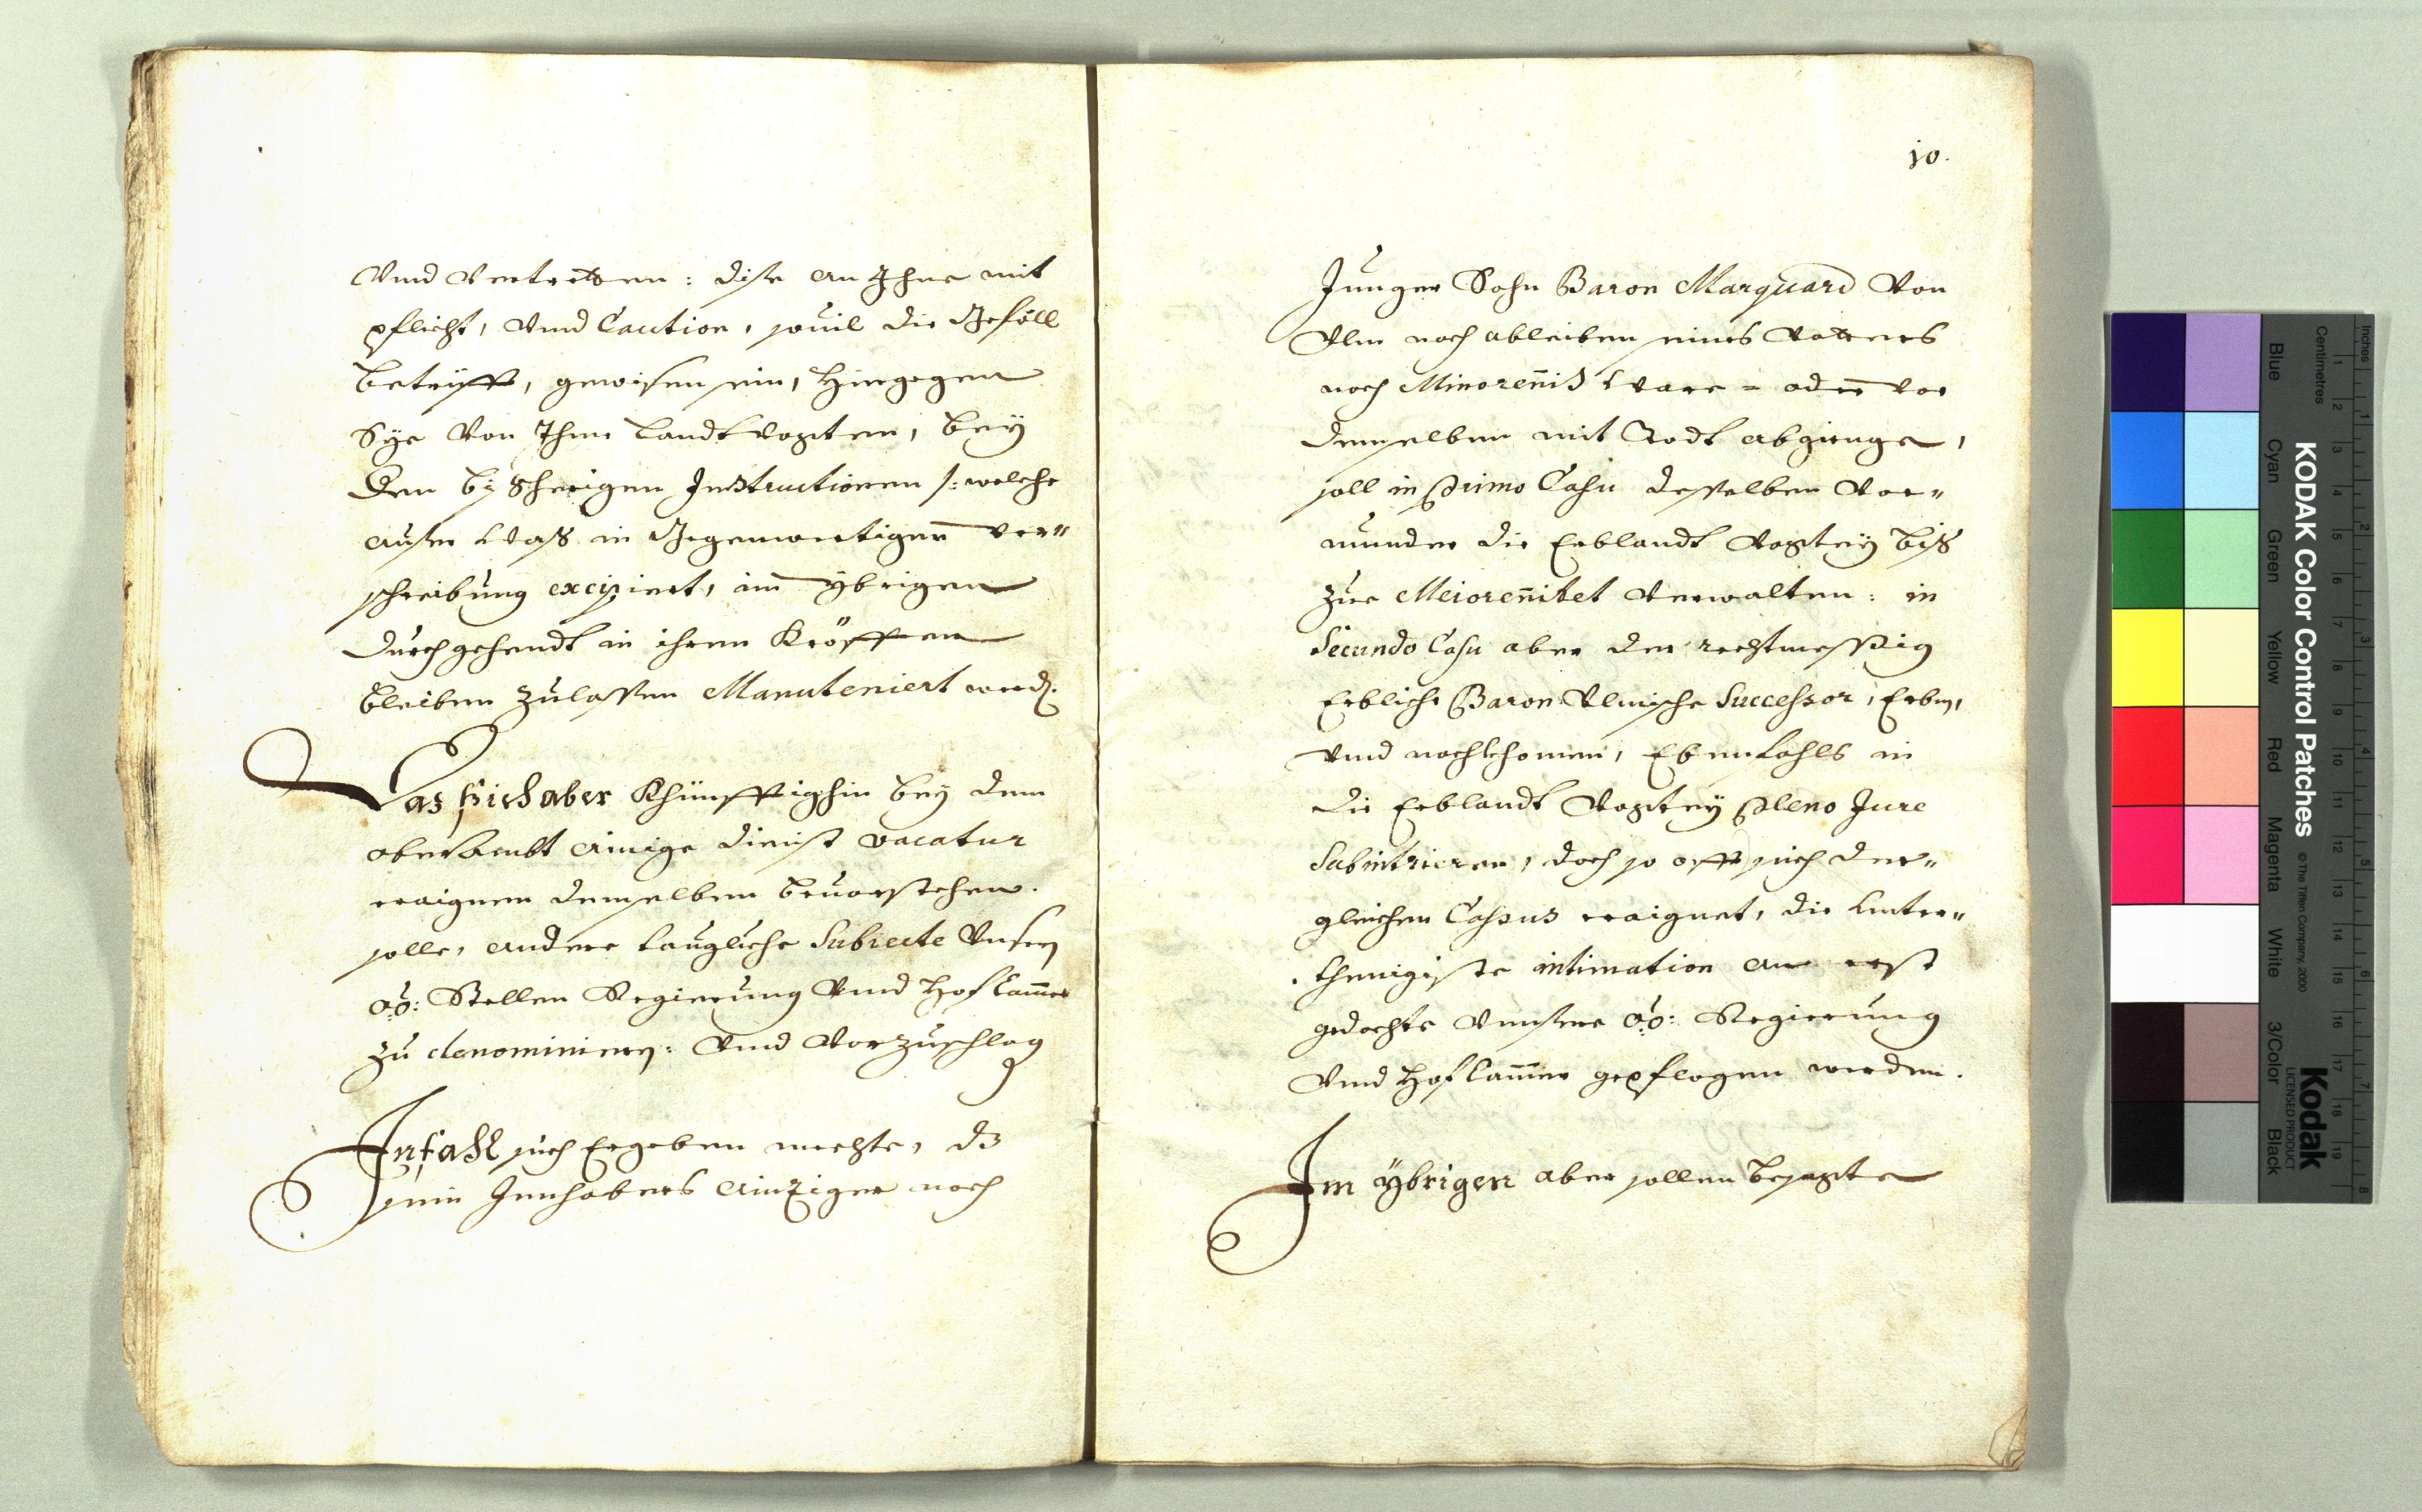 Vnd vertretten: dise an Ihne mit
pflicht, vnd Caution, souil die Gefäll
betrifft, gewisen sein, hingegen
Sye von Ihme Landtvogten, bey
den bißherigen Instructionen /: welche
ausser waß in Gegenwertigen ver"
schreibung excipiert, im ybrigen
durchgehendt in ihren Kröfften
bleiben zulassen Manuteniert werd.
Was sich aber Khünfftighin bey dem
oberambt einige dienst vacatur
eraignen demselben beuorstehen.
solle, andere taugliche Subiecte Vnsern
oö: Stellen Regierung Vnd Hofcamer
zu denominiern: Vnd Vorzuschlag
Infahl sich Ergeben mechte, dz
sein Innhabers ainziger noch
10.
Junger Sohn Baron Marquard Von
Ulm nach ableiben seines Vatters
noch Minorennis ware = oder vor
demselben mit Todt abgienge,
soll in Primo Casu desselben Vor"
munder die Erblandt Vogtey biß
zur Meiorennitet Verwalten: in
Secundo Casu aber der rechtmessig
Erbliche Baron Ulmische Successor, Erben,
vnd nachkhomen, Ebenfahls in
die Erblandt Vogtey Pleno Jure
Subintrieren, doch so offt sich der"
gleichen Cassus eraignet, die Unter"
thenigiste intimation an erst
gedachte Vnsere oö: Regierung
Vnd Hofcamer gepflogen werden.
Im ybrigen aber sollen besagte
KODAK Color Control Patches
© The Tiffen Company, 2000
Kodak
LICENSED PRODUCT
Inches
Centimetres
Blue
Cyan
Green
Yellow
Red
Magenta
White
3/Color
Black